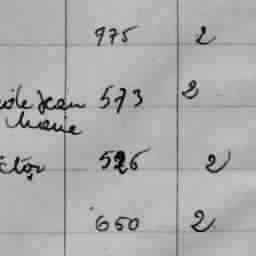 975 2
Jean 573 2
Marie
ctor 526 2
660 2